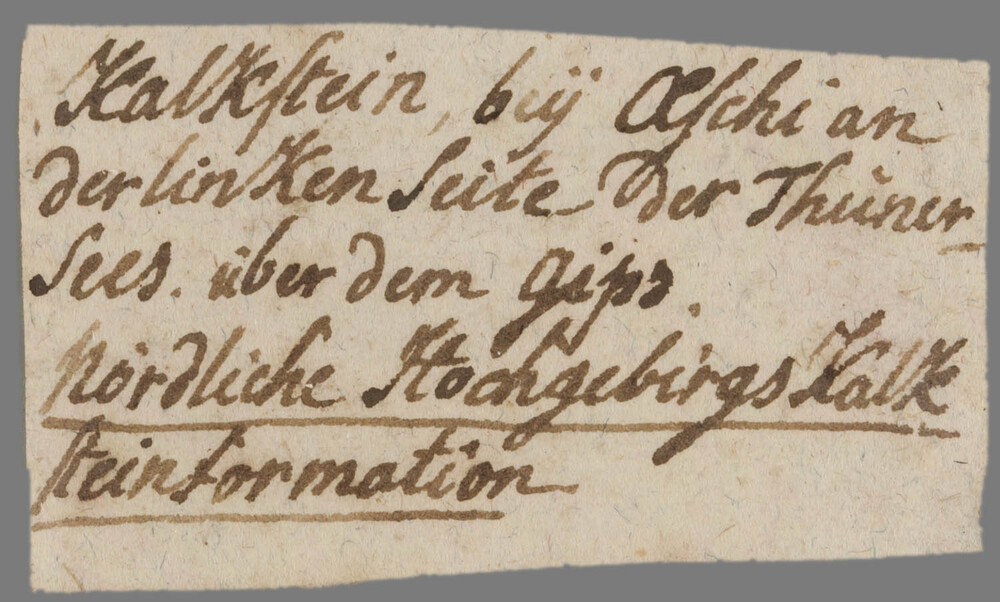 Kalkstein, beÿ Æschi an
der linken Seite der Thuner
Sees. über dem gips.
Nördliche Hochgebirgs Kalk
steinformation